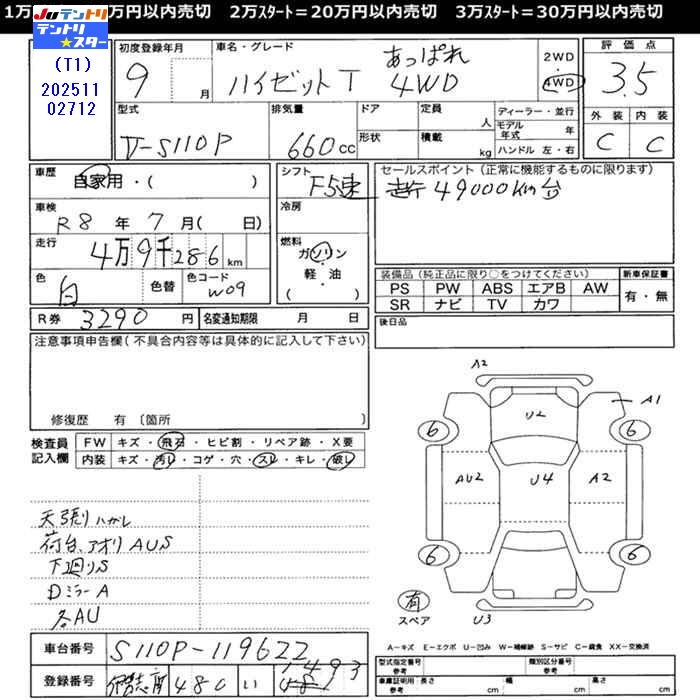 1万 万円以内売切 2万ｽﾀｰﾄ=20万円以内売切 3万ｽﾀｰﾄ=30万円以内売切
JUテントリ
テントリ★スター
(T1)
202511
02712
初度登録年月
9 月
車名・グレード
あっぱれ
ハイゼットT 4WD
2WD
・
4WD
評価点
3.5
外装 内装
C C
型式
V-S110P
排気量
660cc
ドア
形状
定員
人
積載
kg
ディーラー・並行
モデル年式 年
ハンドル 左・右
車歴
自家用・( )
車検
R8年7月( 日)
走行
4万9千286km
色
白
色替
色コード
W09
シフト
F5速
冷房
燃料
ガソリン
・
軽・油
( )
セールスポイント(正常に機能するものに限ります)
走行 49000km台
装備品(純正品に限り○をつけてください)
PS PW ABS エアB AW
SR ナビ TV カワ
新車保証書
有・無
R券 3290円
名変通知期限 月 日
後日品
注意事項申告欄(不具合内容等は具体的に記入して下さい)
修復歴 有〔箇所 〕
検査員
記入欄
FW キズ・飛石・ヒビ割・リペア跡・X要
内装 キズ・汚れ・コゲ・穴・スレ・キレ・破れ
天張りハガレ
荷台、アオリ AUS
下廻りS
DミラーA
各AU
A2
U2
A1
6
6
AU2
U4
A2
6
6
有
スペア
U3
A-キズ E-エクボ U-凹み W-補修跡 S-サビ C-腐食 XX-交換済
車台番号
S110P-119622
登録番号
480 い
1493
型式指定番号
参考
類別区分番号
参考
車庫証明用・長さ
参考 cm
幅
cm
高さ
cm